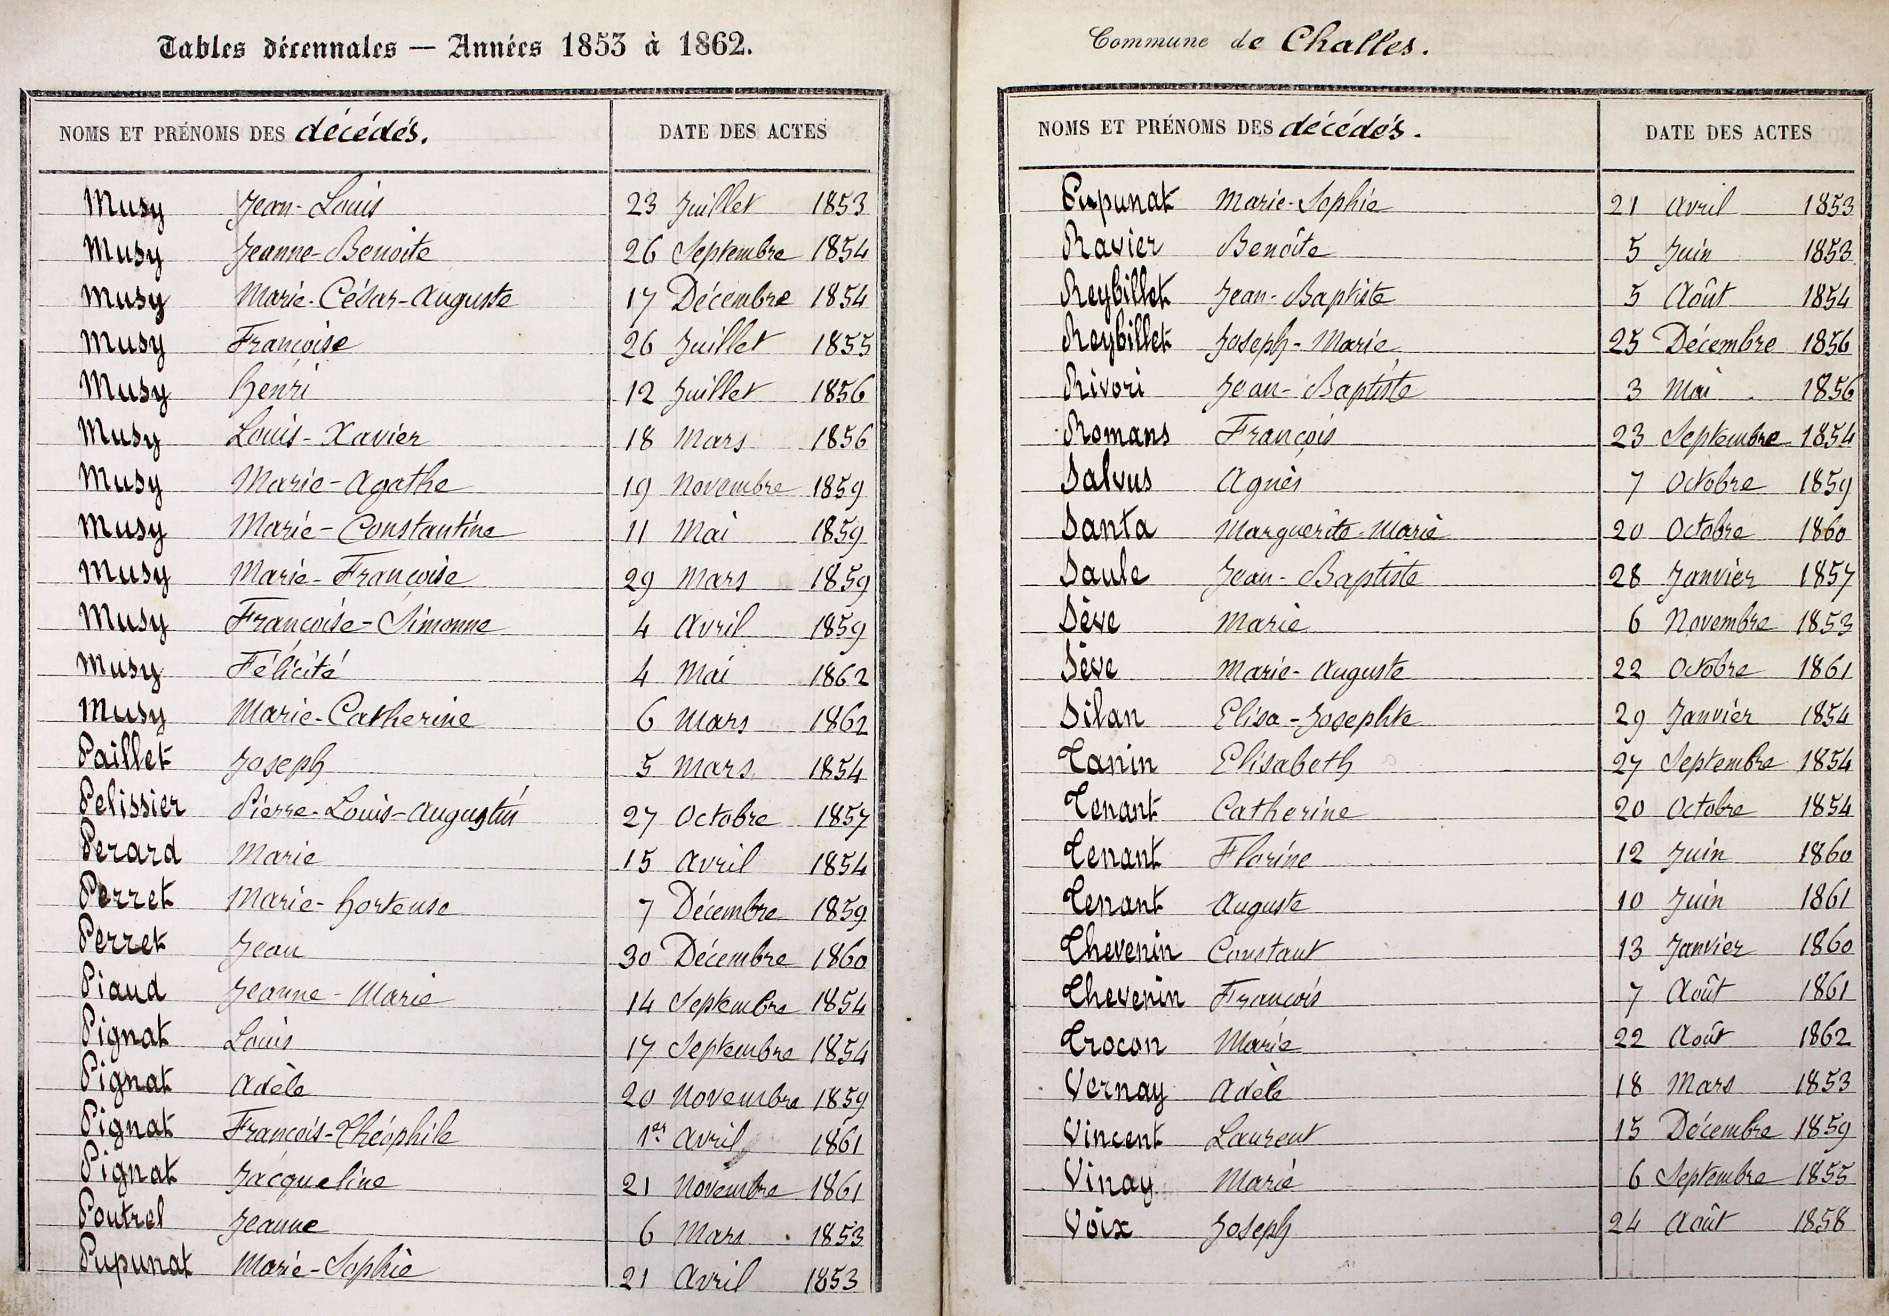 Tables décennales — Années 1853 à 1862.
NOMS ET PRÉNOMS DES décédés. DATE DES ACTES
Musy Jean-Louis 23 Juillet 1853
Musy Jeanne-Benoite 26 Septembre 1854
Musy Marie-César-Auguste 17 Décembre 1854
Musy Françoise 26 Juillet 1855
Musy Henri 12 Juillet 1856
Musy Louis-Xavier 18 Mars 1856
Musy Marie-Agathe 19 Novembre 1859
Musy Marie-Constantine 11 Mai 1859
Musy Marie-Françoise 29 Mars 1859
Musy Françoise-Simonne 4 Avril 1859
Musy Félicité 4 Mai 1862
Musy Marie-Catherine 6 Mars 1862
Paillet Joseph 5 Mars 1854
Pelissier Pierre-Louis-Augustin 27 Octobre 1857
Perard Marie 15 Avril 1854
Perret Marie-Hortense 7 Décembre 1859
Perret Jean 30 Décembre 1860
Piaud Jeanne-Marie 14 Septembre 1854
Pignat Louis 17 Septembre 1854
Pignat Adèle 20 Novembre 1859
Pignat François-Théophile 1er Avril 1861
Pignat Jacqueline 21 Novembre 1861
Poutrel Jeanne 6 Mars 1853
Pupunat Marie-Sophie 21 Avril 1853
Commune de Challes.
NOMS ET PRÉNOMS DES décédés. DATE DES ACTES
Pupunat Marie-Sophie 21 Avril 1853
Ravier Benoîte 5 Juin 1853
Reybillet Jean-Baptiste 5 Août 1854
Reybillet Joseph-Marie 25 Décembre 1856
Rivori Jean-Baptiste 3 Mai 1856
Romans François 23 Septembre 1854
Salvus Agnès 7 Octobre 1859
Santa Marguerite-Marie 20 Octobre 1860
Saule Jean-Baptiste 28 Janvier 1857
Sève Marie 6 Novembre 1853
Sève Marie-Auguste 22 Octobre 1861
Silan Elisa-Josephte 29 Janvier 1854
Tanin Elisabeth 27 Septembre 1854
Tenant Catherine 20 Octobre 1854
Tenant Florine 12 Juin 1860
Tenant Auguste 10 Juin 1861
Thevenin Constant 13 Janvier 1860
Thevenin François 7 Août 1861
Trocon Marie 22 Août 1862
Vernay Adèle 18 Mars 1853
Vincent Laurent 15 Décembre 1859
Vinay Marie 6 Septembre 1855
Voix Joseph 24 Août 1858